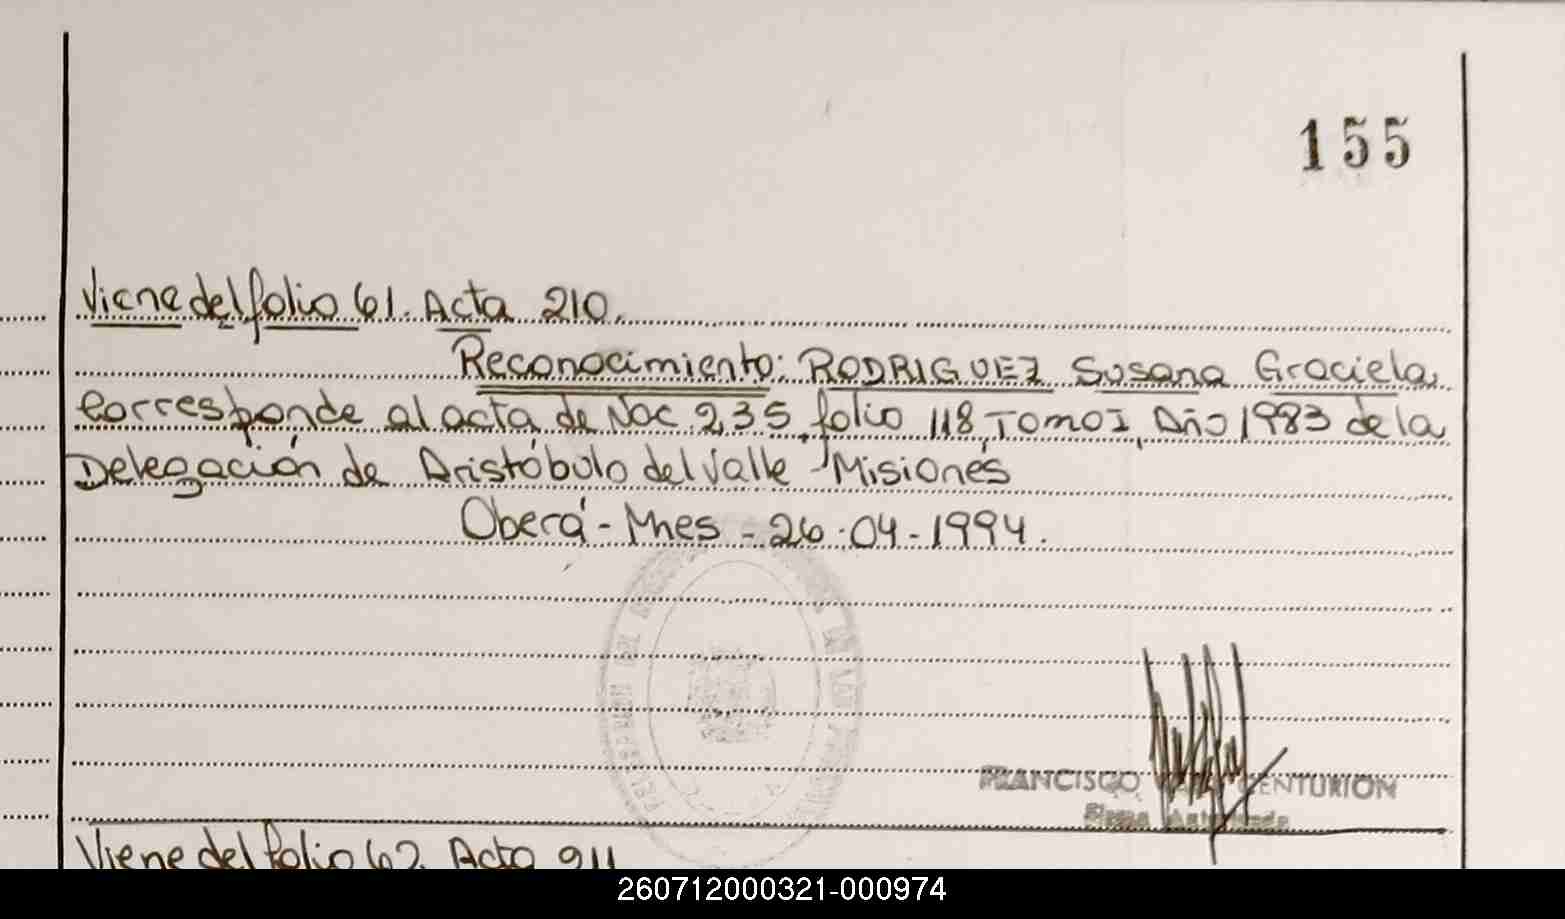 155
Viene del folio 61. Acta 210.
Reconocimiento: RODRIGUEZ Susana Graciela
Corresponde al acta de Nac. 235, folio 118, Tomo I, Año 1983 de la
Delegación de Aristóbulo del Valle - Misiones
Oberá - Mnes - 26-04-1994.
FRANCISCO CENTURION
Firma Autorizada
Viene del folio 62. Acta 211
260712000321-000974